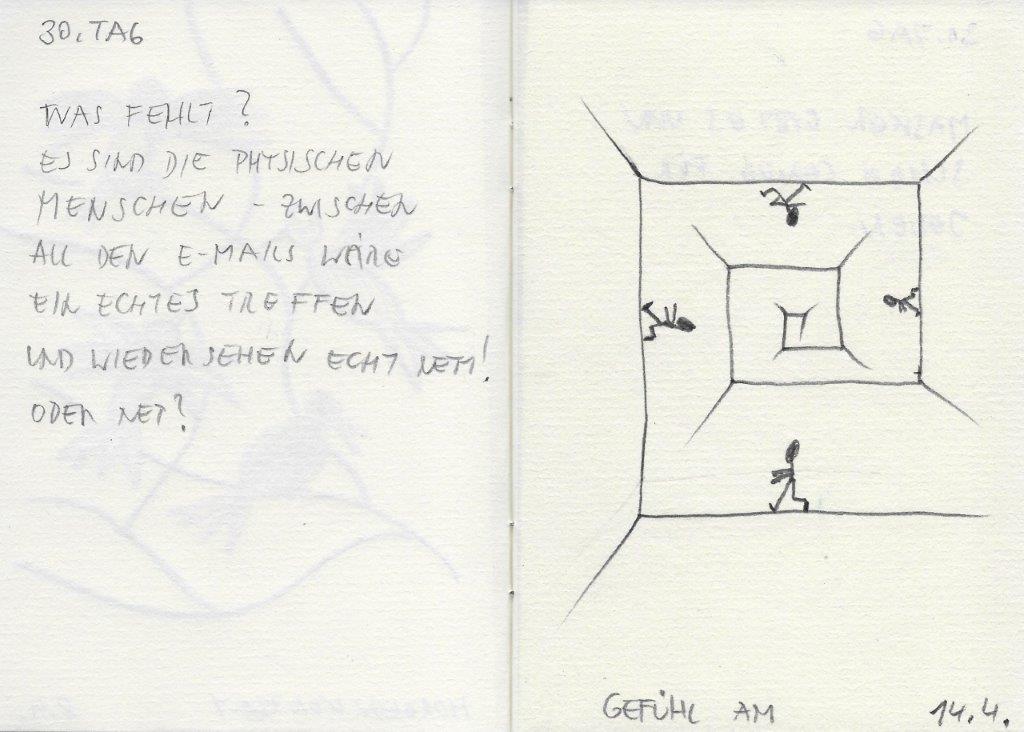 30. TAG
WAS FEHLT?
ES SIND DIE PHYSISCHEN
MENSCHEN - ZWISCHEN
ALL DEN E-MAILS WÄRE
EIN ECHTES TREFFEN
UND WIEDERSEHEN ECHT NETT!
ODER NET?
GEFÜHL AM 14.4.